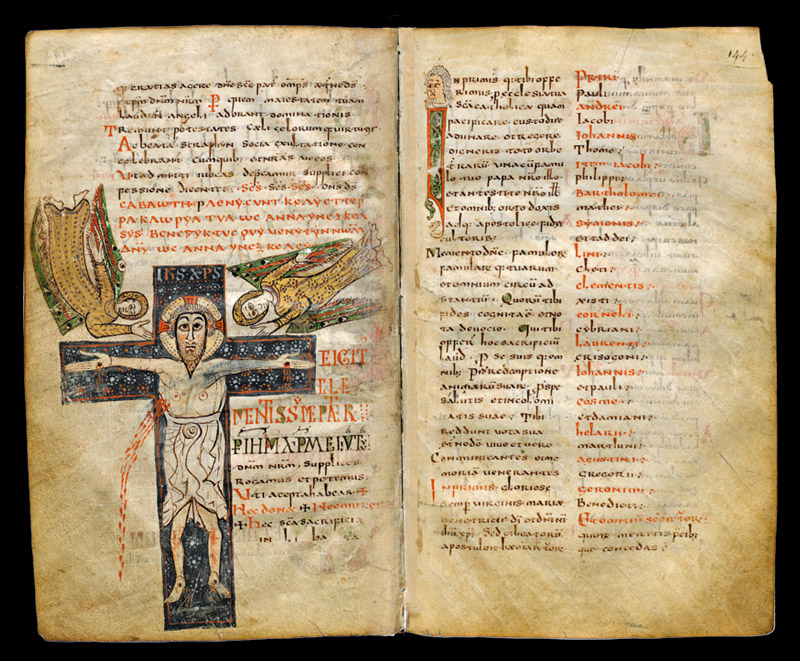 gratias agere dne sce pat omps aetne ds
p xpm dnm nrm P quem maiestatem tuam
laudant angeli adorant dominationis
Tremunt potestates caeli celorumque
Ac beata seraphyn socia exultatione con
celebrant cumquib; et nras uoces
Ut admitti iubeas deprecamur supplici con
fessione dicentes SCS SCS SCS DNS DS
CABAWTH PLENY CYNT KELY ET TER
RA KLWRYA TVA WC ANNA YN EXKEL
SYS BENEDYKTVC QVY VENYT YN NWMY
DNY WC ANNA YN
IHS XPS
EIGIT
MENTISSME PATER
dnm nrm supplices
Rogamus et petemus
Uti accepta habeas
Hec dona + Hec munera
+ Hec sca sacrificia
in li ba ta
144
In primis q: tibi offe
rimus p ecclesia tua
sca catholica quam
pacificare custodire
adunare et regere
digneris toto orbe
terraru una cu famu
lo tuo papa nro illo
et antestite nro ill
et omnib; ortodoxis
adq; apostolice fidei
cultoribus
Memento dne famulor
famular q: tuarum
et omnium circu ad
stantiu Quoru tibi
fides cognita e et no
ta deuocio Qui tibi
offer hoc sacrificiu
laud p se suis q: om
nib; P redemptione
animaru suar p spe
salutis et incolomi
tatis suae Tibi
reddunt uota sua
et no do uiuo et uero
Communicantes et me
moria uenerantes
Inprimis gloriose
semp uirginis mariae
genetricis di et dni nri
ihu xpi Sed et beatoru
apostolor
Petri
Pauli
andrei
Iacobi
Iohannis
Thome
item iacobi
philippi
Bartholomei
mathei
symonis
et taddei
Lini
cleti
clementis
xisti
corneli
cybriani
Laurenti
crisogoni
Iohannis
et pauli
cosme
et damiani
helarii
martini
agustini
Gregorii
geronimi
Benedicti
Et omniu scoru tuor
quor meretis pcib;
que concedas